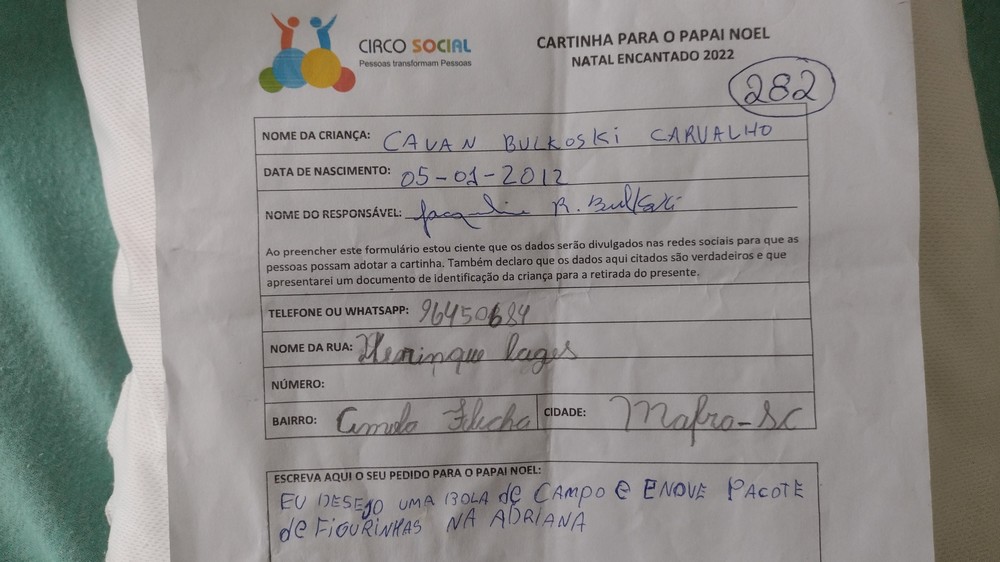 CIRCO SOCIAL
Pessoas transformam Pessoas
CARTINHA PARA O PAPAI NOEL
NATAL ENCANTADO 2022
282
NOME DA CRIANÇA: CAUAN BULKOSKI CARVALHO
DATA DE NASCIMENTO: 05-01-2012
NOME DO RESPONSÁVEL: Jaqueline R. Bulkoski
Ao preencher este formulário estou ciente que os dados serão divulgados nas redes sociais para que as
pessoas possam adotar a cartinha. Também declaro que os dados aqui citados são verdadeiros e que
apresentarei um documento de identificação da criança para a retirada do presente.
TELEFONE OU WHATSAPP: 96450684
NOME DA RUA: lages
NÚMERO:
BAIRRO: CIDADE: Mafra-SC
ESCREVA AQUI O SEU PEDIDO PARA O PAPAI NOEL:
EU DESEJO UMA BOLA de CAMPO e ENOVE PACOTE
de FIGURINHAS NA ADRIANA